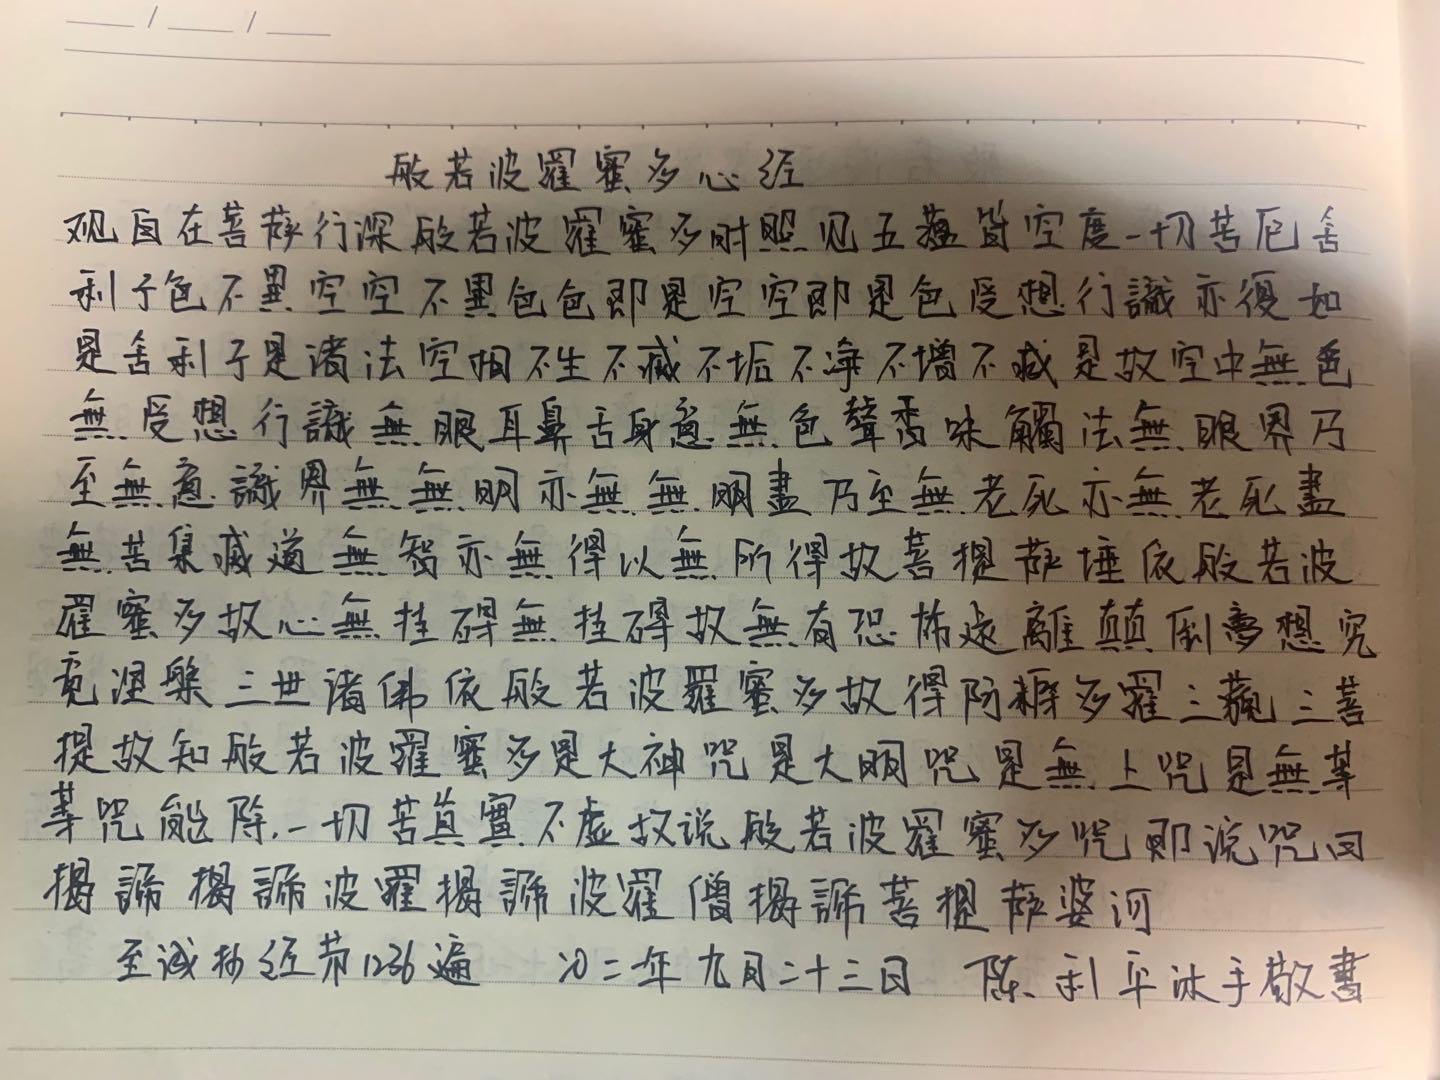 般若波羅蜜多心经
观自在菩薩行深般若波羅蜜多时照见五蘊皆空度一切苦厄舍
利子色不異空空不異色色即是空空即是色受想行識亦復如
是舍利子是诸法空相不生不滅不垢不净不增不减是故空中無色
無受想行識無眼耳鼻舌身意無色聲香味觸法無眼界乃
至無意識界無無明亦無無明盡乃至無老死亦無老死盡
無苦集滅道無智亦無得以無所得故菩提薩埵依般若波
羅蜜多故心無挂碍無挂碍故無有恐怖远離顛倒夢想究
竟涅槃三世诸佛依般若波羅蜜多故得阿耨多羅三藐三菩
提故知般若波羅蜜多是大神咒是大明咒是無上咒是無等
等咒能除一切苦真實不虚故说般若波羅蜜多咒即说咒曰
揭諦揭諦波羅揭諦波羅僧揭諦菩提薩婆诃
至诚抄经第1236遍 二年九月二十三日 陈利平沐手敬書